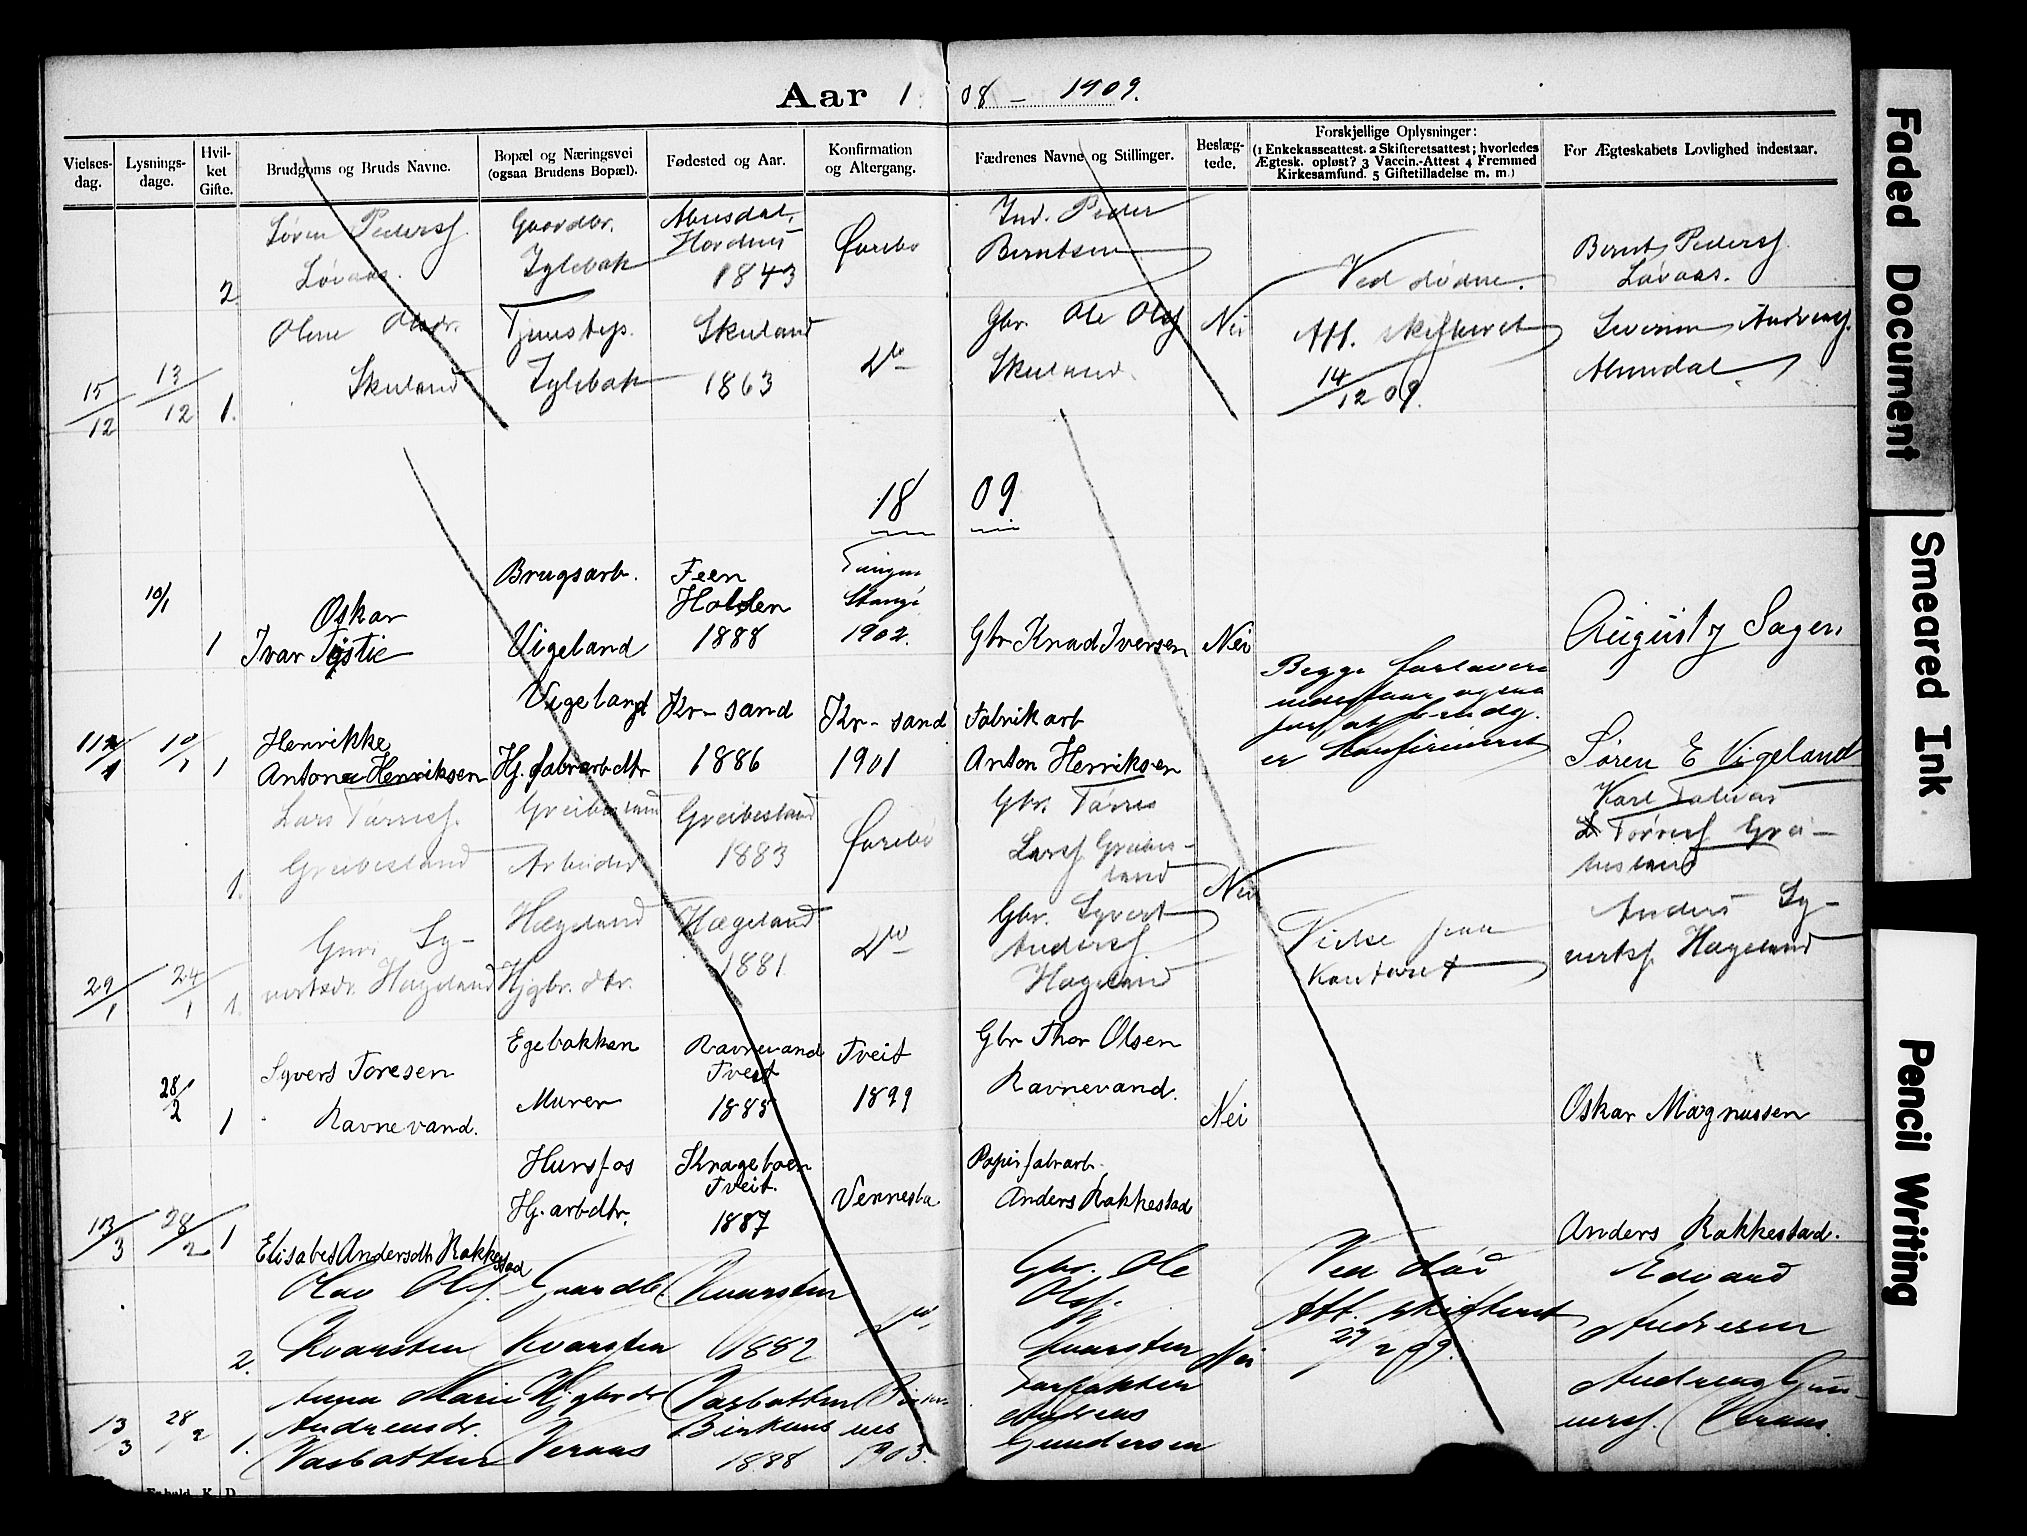 Aar 1 08 - 1909.
Vielses-dag.
Lysnings-dage.
Hvil-ket Gifte.
Brudgoms og Bruds Navne.
Bopæl og Næringsvei (ogsaa Brudens Bopæl).
Fødested og Aar.
Konfirmation og Altergang.
Fædrenes Navne og Stillinger.
Beslæg-tede.
Forskjellige Oplysninger: (1 Enkekasseattest. 2 Skifteretsattest; hvorledes Ægtesk. opløst? 3 Vaccin.-Attest 4 Fremmed Kirkesamfund. 5 Giftetilladelse m. m.)
For Ægteskabets Lovlighed indestaar.
2. Søren Peders. Løvaas.
Gaardbr. Iglebak
1843
Øvrebø
Ind. Peder Berntsen
Ved døden.
Bernt Peders. Løvaas.
15/12 13/12 1. Olene Olsdr. Skuland
Tjenstepi. Iglebak
Skuland 1863
Do
Gbr. Ole Ols. Skuland.
Nei
Att. skifteret 14/12 09.
Severin Andreas. Almedal
18 09
10/1 1 Oskar Ivar
Brugsarb. Vigeland
Feen Holden 1888
1902.
Gbr Knud Iversen
Nei
August Sagen.
10/1 1 Henrikke Antona Henriksen
Vigeland Hj. fabrarbdtr
Kr-sand 1886
Kr-sand 1901
Fabrikarb Anton Henriksen
Begge
er konfirmeret
Søren E Vigeland
1. Lars Tørres. Greibesland
Greibesland Arbeider
Greibesland 1883
Øvrebø
Gbr. Tørres Lars. Greibesland
Nei
Karl Tobias Tørres. Greibesland
29/1 24/1 1. Guri Syvertsdr. Hægeland
Hægeland Hjgbr. dtr.
Hægeland 1881
Do
Gbr. Syvert Anders. Hægeland
Vielse paa Kontoret
Anders Syverts. Hægeland
28/2 1 Syvert Toresen Ravnevand.
Egebakken Murer
Ravnevand Tveit 1885
Tveit 1899
Gbr Thor Olsen Ravnevand.
Nei
Oskar Magnussen
13/3 28/2 1 Elisabet Andersdtr Rakkestad
Hunsfos Hj. arbdtr.
Krageboen Tveit. 1887
Vennesla
Papirfabrarb. Anders Rakkestad
Anders Rakkestad.
2. Olav Ols. Kvarsten
Gaardbr. Kvarsten
Kvarsten 1882
Do
Gbr. Ole Ols. Kvarsten
Nei
Ved død Att. skifteret 27/2 09.
Edvard Andresen
13/3 28/2 1. Anna Marie Andreasdr. Vasbotten
Hjgbr dr Veraas
Vasbotten Birkenes 1888
Birkenes 1903.
Andreas Gundersen
Andreas Gunners. Veraas.
Faded Document
Smeared Ink
Pencil Writing